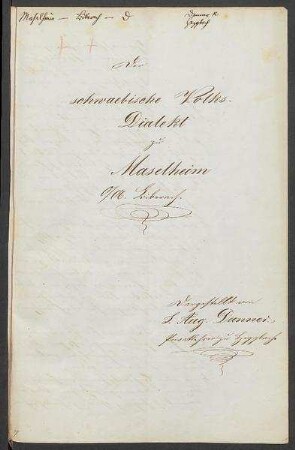 Maselheim – Biberach – D
Der
schwaebische Volks-
Dialekt
zu
Maselheim
O/A. Biberach.
Dargestellt von
L. Aug. Danner,
zu